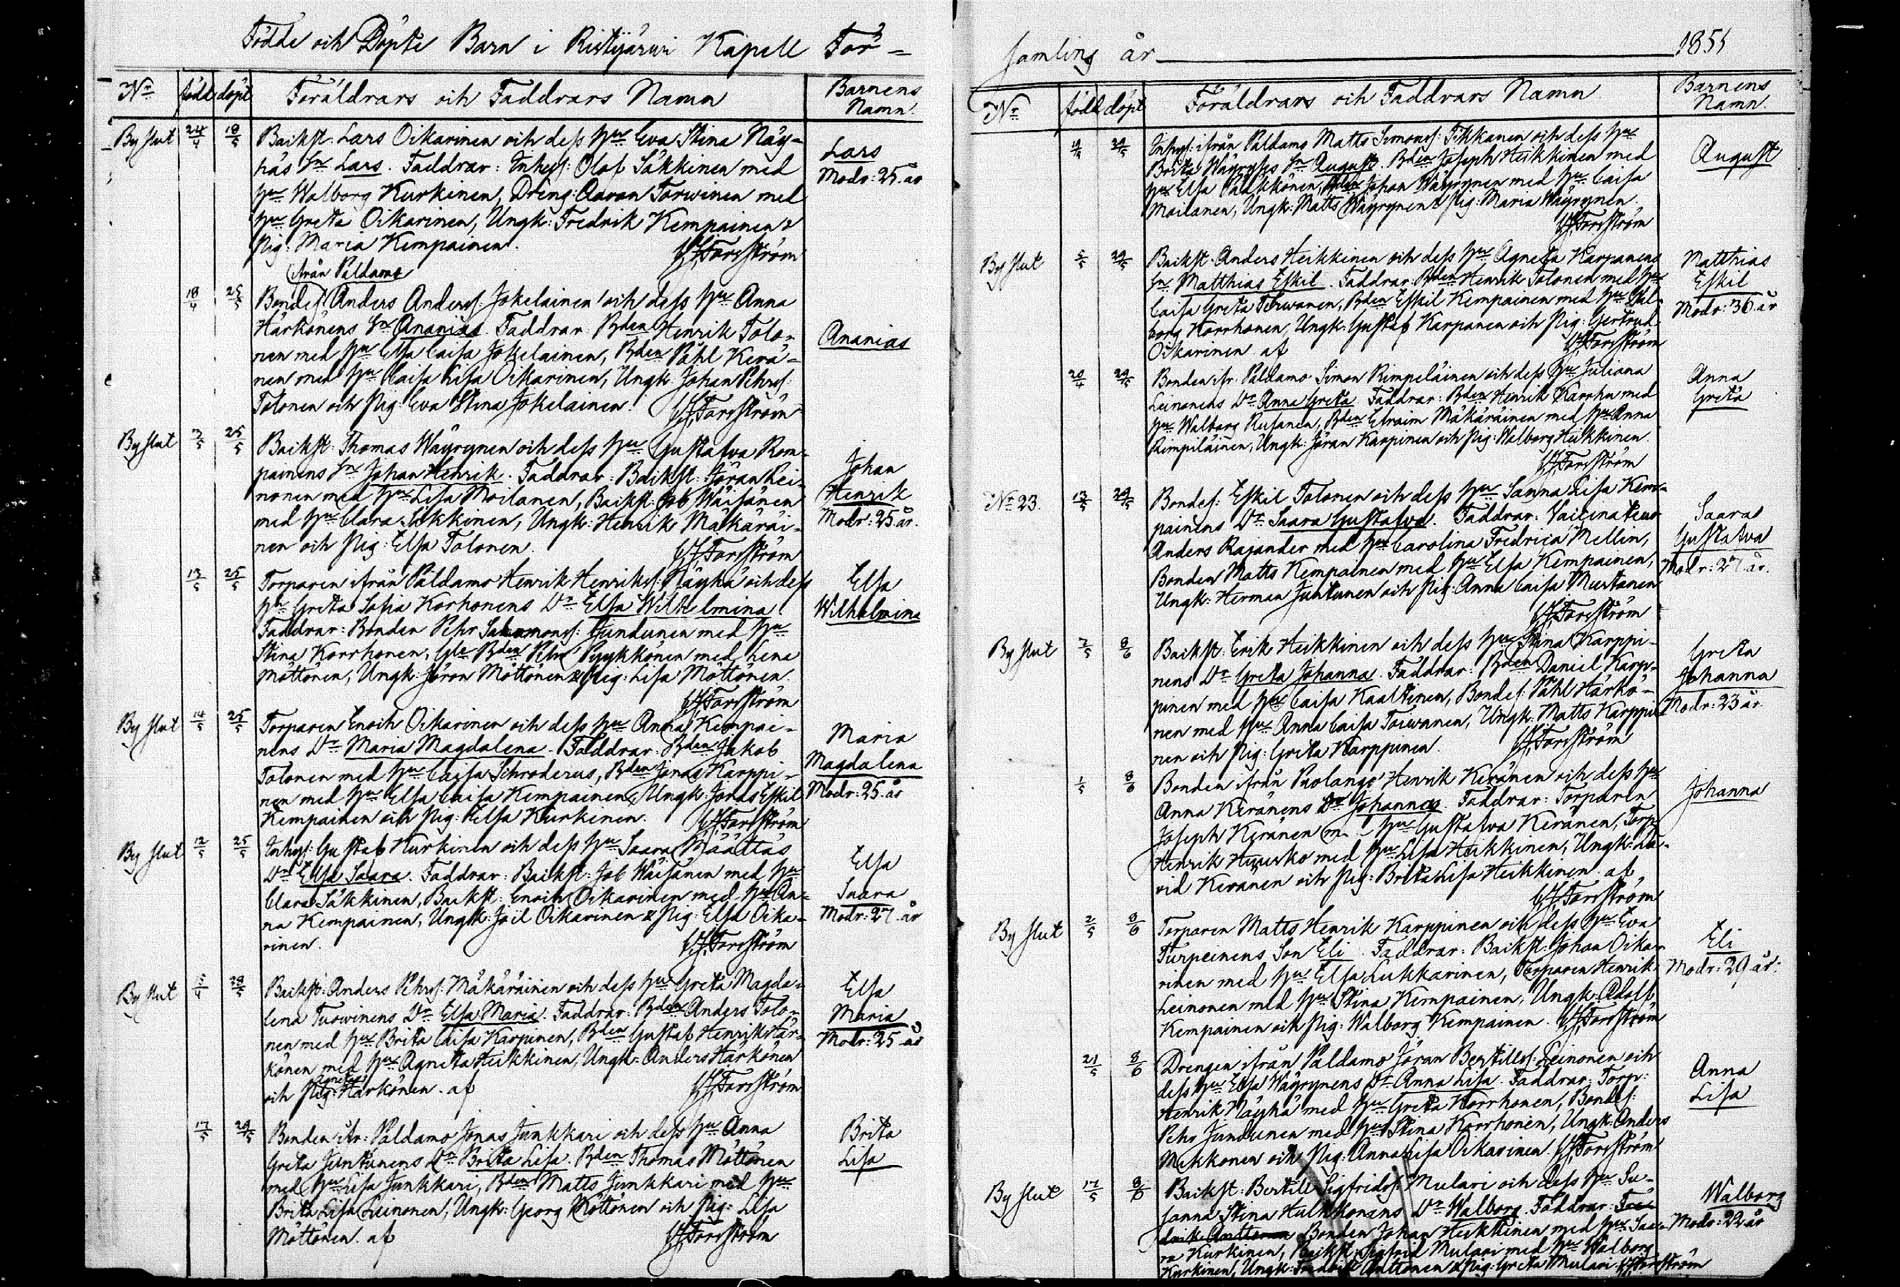 Födde och Döpte Barn i Ristijärwi Kapell För=
No född döpt Föräldrars och Faddrars Namn Barnens Namn.
By slut 24/4 18/5 Backst. Lars Oikarinen och dess Hu Eva Stina Näy-
häs Sn Lars. Faddrar: Inhys: Olof Säkkinen med
Hu Walborg Kurkinen, Dreng Aaron Torwinen med
Hu Greta Oikarinen, Ungk: Fredrik Kempainen &
Pig: Maria Kempainen. Forsström
Lars
Modr: 25 år
från Paldamo
18/4 25/5 Bondes Anders Anderss: Jokelainen och dess Hu Anna
Härkönens Sn Ananias. Faddrar: Bden Henrik Tolo-
nen med Hu Elsa Caisa Jokelainen, Bden Påhl Kerä-
nen med Hu Caisa Lisa Oikarinen, Ungk: Johan Pehrs:
Tolonen och Pig: Eva Stina Jokelainen. Forsström
Ananias
By slut 13/5 25/5 Backst: Thomas Wäyrynen och dess Hu Gustafva Kem-
painens Sn Johan Henrik. Faddrar: Backst: Jöran Lei-
nonen med Hu Lisa Moilanen, Backst: Job Wäisänen
med Hu Clara Säkkinen, Ungk: Henrik Mäkäräi-
nen och Pig: Elsa Tolonen. Forsström
Johan
Henrik
Modr: 25 år.
13/5 25/5 Torparen ifrån Paldamo Henrik Henrikss: Näyhä och dess
Hu Greta Sofia Korhonens Dr Elsa Wilhelmina
Faddrar: Bonden Pehr Salomons: Jundunen med Hu
Stina Korrhonen, Bden Pyykkönen med Lena
Möttönen, Ungk: Jöran Möttönen & Pig: Lisa Möttönen.
Forsström
Elsa
Wilhelmina
By slut 14/5 25/5 Torparen Enoch Oikarinen och dess Hu Anna Kempai-
nens Dr Maria Magdalena. Faddrar: Bden Jakob
Tolonen med Hu Caisa Schroderus, Bden Jonas Karppi-
nen med Hu Elsa Caisa Kempainen, Ungk: Jonas Eskil
Kempainen och Pig: Elsa Kurkinen. Forsström
Maria
Magdalena
Modr: 25 år
By slut 12/5 25/5 Inhys: Gustaf Kurkinen och dess Hu Saara Määttäs
Dr Elsa Saara. Faddrar: Backst: Job Wäisänen med Hu
Clara Säkkinen, Backst: Enoch Oikarinen med Hu An-
na Kempainen, Ungk: Joil Oikarinen & Pig: Elsa Oika-
rinen. Forsström
Elsa
Saara
Modr: 27 år
By slut Backst: Anders Pehrs: Mäkäräinen och dess Hu Greta Magda-
lena Turwinens Dr Elsa Maria. Faddrar: Bden Anders Tolo-
nen med Hu Brita Caisa Karpinen, Bden Gustaf Henriks: Här-
könen med Hu Agneta Heikkinen, Ungk: Anders Härkönen
och Pig: Härkönen. af Forsström
Elsa
Maria
Modr: 25 år
17/5 29/5 Bonden ifr: Paldamo Jonas Junkkari och dess Hu Anna
Greta Juntunens Dr Brita Lisa. Bden Thomas Möttönen
med Hu Lisa Junkkari, Bden Matts Junkkari med Hu
Brita Lisa Leinonen, Ungk: Georg Möttönen och Pig: Lisa
Möttönen. af Forsström
Brita
Lisa
samling år 1851
No född döpt Föräldrars och Faddrars Namn Barnens Namn.
Inhys: ifrån Paldamo Matts Simonss: Tikkanen och dess Hu
Brita Wäyryses Sn August. Bden Joseph Heikkinen med
Hu Elsa Pääkkönen, Bden Johan Wäyrynen med Hu Caisa
Moilanen, Ungk: Matts Wäyrynen & Pig: Maria Wäyrynen.
Forsström
August
By slut 5/5 29/5 Backst: Anders Heikkinen och dess Hu Agneta Karpanens
Sn Matthias Eskil. Faddrar: Bden Henrik Tolonen med Hu
Caisa Greta Torwanen, Bden Eskil Kempainen med Hu Wal-
borg Korrhonen, Ungk: Gustaf Karpanen och Pig: Gertrud
Oikarinen af Forsström
Matthias
Eskil
Modr: 36 år
20/4 29/5 Bonden ifr. Paldamo Simon Rimpeläinen och dess Hu Juliana
Leinonens Dr Anna Greta. Faddrar: Bden Henrik Karrhu med
Hu Walborg Rusanen, Bden Efraim Mäkäräinen med Hu Anna
Rimpiläinen, Ungk: Jöran Karpinen och Pig: Walborg Heikkinen.
Forsström
Anna
Greta
No 23. 13/5 29/5 Bondes: Eskil Tolonen och dess Hu Sanna Lisa Kem-
painens Dr Saara Gustafva. Faddrar: Vaccinateur
Anders Rajander med Hu Carolina Fredrica Mellin,
Bonden Matts Kempainen med Hu Elsa Kempainen,
Ungk: Herman Juntunen och Pig: Anna Caisa Murtonen
Forsström
Saara
Gustafva
Modr: 27 år.
By slut 7/5 8/6 Backst: Erik Heikkinen och dess Hu Stina Karppi-
nens Dr Greta Johanna. Faddrar: Bden Daniel Karp-
pinen med Hu Caisa Kaaltinen, Bondes: Påhl Härkö-
nen med Hu Anna Caisa Torwanen, Ungk: Matts Karppi-
nen och Pig: Greta Karppinen. Forsström
Greta
Johanna
Modr: 23 år
1/5 8/6 Bonden ifrån Puolango Henrik Keränen och dess Hu
Anna Keränens Dr Johanna. Faddrar: Torparen
Joseph Keränen m. Hu Gustafva Keränen, Torp:
Henrik Hurusko med Hu Lisa Heikkinen, Ungk: Da-
vid Keränen och Pig: Brita Lisa Heikkinen. af
Forsström
Johanna
By slut 2/5 8/6 Torparen Matts Henrik Karppinen och dess Hu Eva
Turpeinens Son Eli. Faddrar: Backst: Johan Oika-
rinen med Hu Elsa Lukkarinen, Torparen Henrik
Leinonen med Hu Stina Kempainen, Ungk: Adolf
Kempainen och Pig: Walborg Kempainen. Forsström
Eli
Modr: 29 år.
21/5 8/6 Drengen ifrån Paldamo Jöran Bertills: Leinonen och
dess Hu Elsa Wäyrynens Dr Anna Lisa. Faddrar: Torp:
Henrik Näyhä med Hu Greta Korrhonen, Bondes:
Pehr Jundunen med Hu Stina Korrhonen, Ungk: Anders
Mikkonen och Pig: Anna Lisa Oikarinen. Forsström
Anna
Lisa
By slut 17/5 8/6 Backst: Bertill Sigfrids: Mulari och dess Hu Su-
sanna Stina Hulkkonens Dr Walborg. Faddrar:
Bonden Johan Heikkinen med Hu Saa-
ra Kurkinen, Backst: Sigfrid Mulari med Hu Walborg
Kurkinen, Ungk: Fredrik Anttonen & Pig: Greta Mulari. Forsström
Walborg
Modr: 22 år